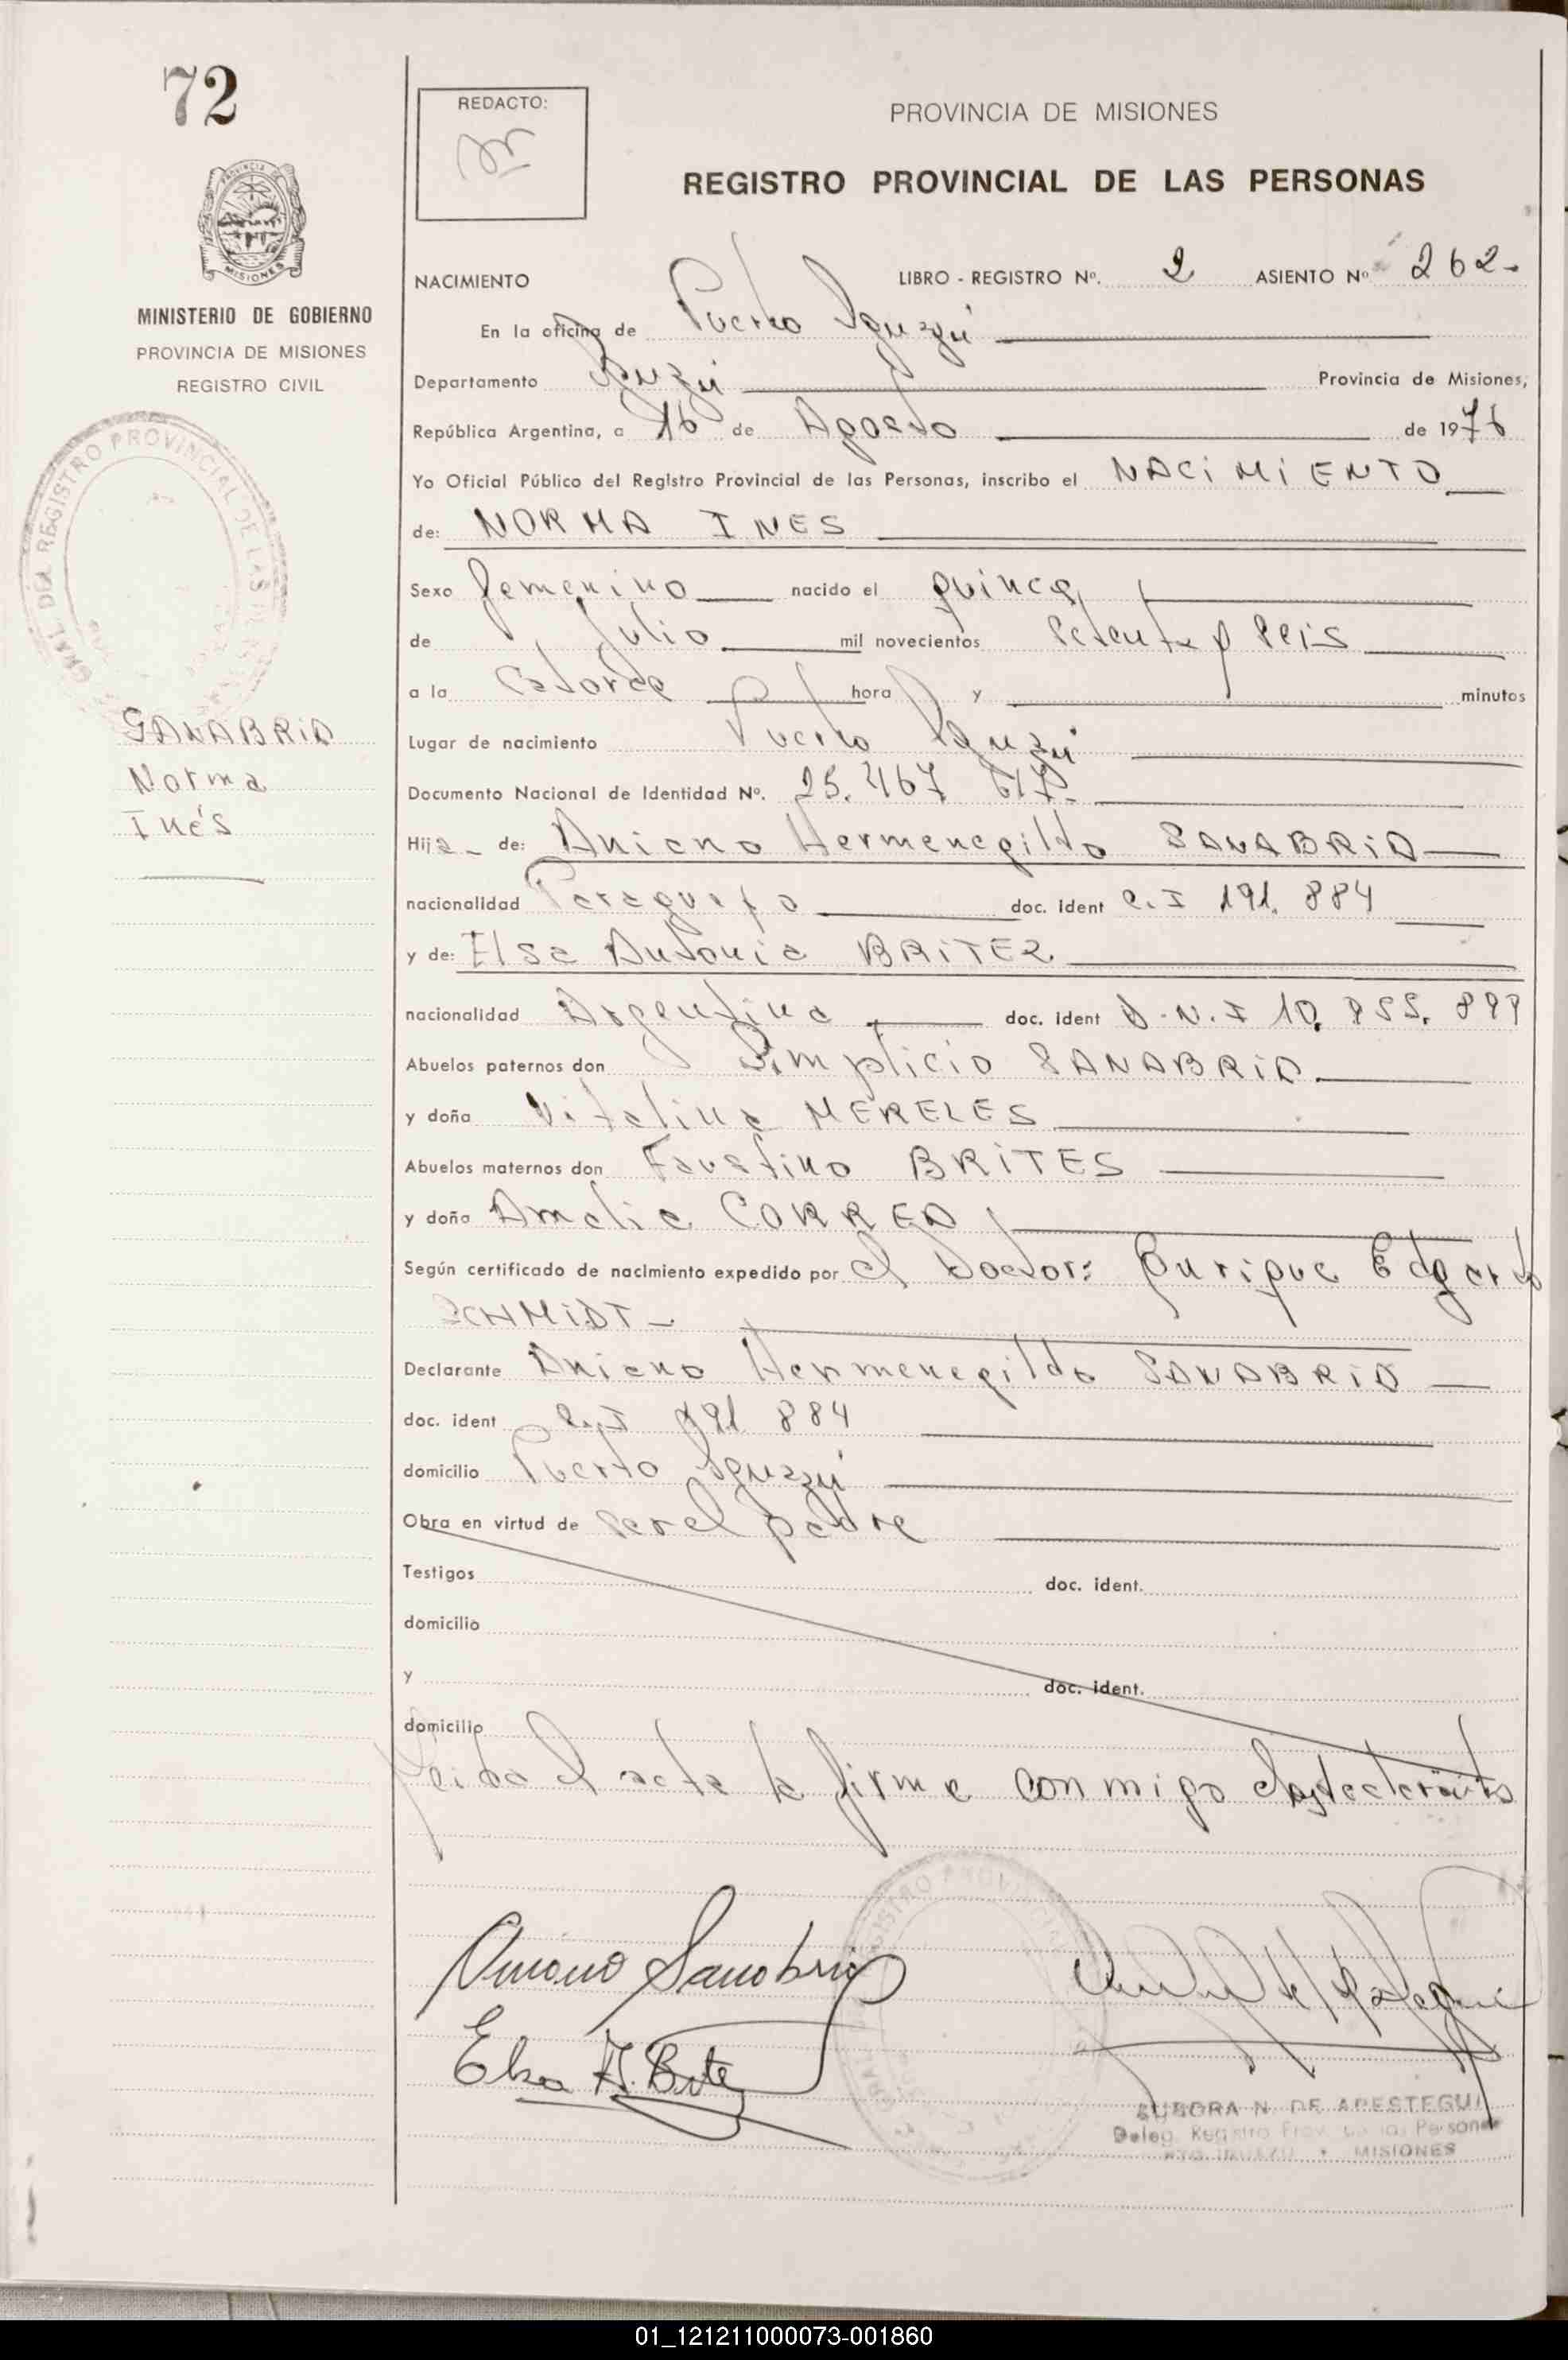 72
REDACTO:
PROVINCIA DE MISIONES
REGISTRO PROVINCIAL DE LAS PERSONAS
MISIONES
MINISTERIO DE GOBIERNO
PROVINCIA DE MISIONES
REGISTRO CIVIL
NACIMIENTO LIBRO - REGISTRO Nº. 2 ASIENTO Nº 262.
En la oficina de Puerto Iguazú
Departamento Iguazú Provincia de Misiones,
República Argentina, a 16 de Agosto de 1976
Yo Oficial Público del Registro Provincial de las Personas, inscribo el NACIMIENTO
de: NORMA INES
Sexo femenino nacido el quince
de Julio mil novecientos setenta y seis
a la catorce hora y minutos
SANABRIA
Norma
Inés
Lugar de nacimiento Puerto Iguazú
Documento Nacional de Identidad Nº. 25.467 617.
Hija de: Aniano Hermenegildo SANABRIA
nacionalidad Paraguayo doc. ident C.I 191.884
y de: Elsa Antonia BRITEZ
nacionalidad Argentina doc. ident D.N.I 10.
Abuelos paternos don Simplicio SANABRIA
y doña Vitalina MERELES
Abuelos maternos don Faustino BRITES
y doña Amalia CORREA
Según certificado de nacimiento expedido por el Doctor: Enrique Edgardo
SCHMIDT
Declarante Aniano Hermenegildo SANABRIA
doc. ident C.I 191 884
domicilio Puerto Iguazú
Obra en virtud de ser el padre
Testigos doc. ident.
domicilio
y doc. ident.
domicilio
Leida el acta la firma conmigo el declarante
Aniano Sanabria
Elsa A. Britez
AURORA N. DE APESTEGUI
Deleg. Registro Prov. de las Personas
PTO. IGUAZU • MISIONES
01_121211000073-001860